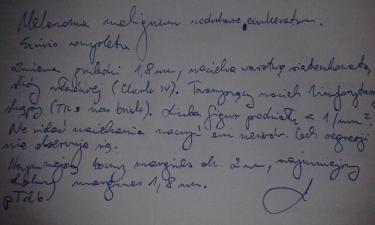 Melanoma malignum nodulare exulceratum.
Excisio completa
Zmiana grubości 1,8 mm, nacieka warstwę siateczkowatą
skóry właściwej (Clark IV). Towarzyszący naciek limfocytarny
skąpy (TILs non brisk). Liczba figur podziału < 1/mm².
Nie widać naciekania naczyń ani nerwów. Cech regresji
nie obserwuje się.
Najmniejszy boczny margines ok. 2 mm, najmniejszy
margines 1,8 mm.
pT2b